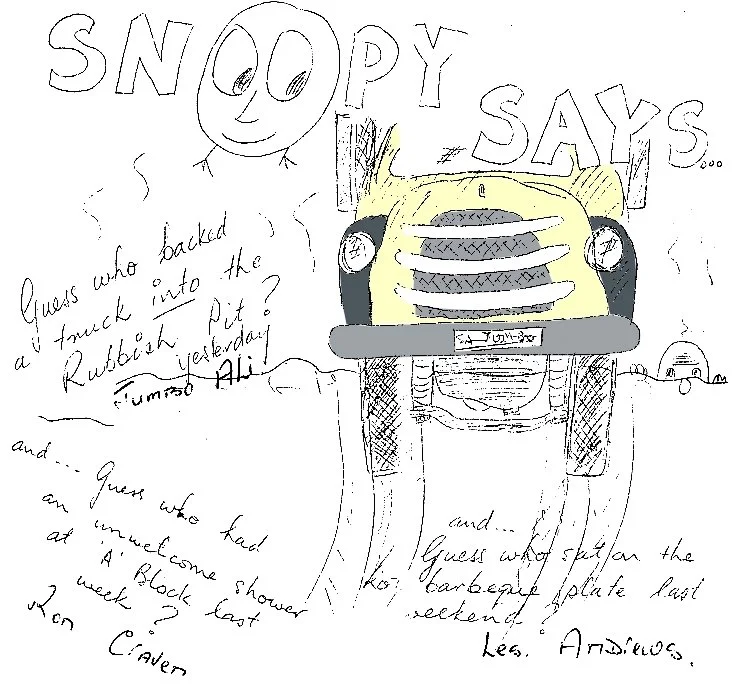 SNOOPY
SAYS...
Guess who backed
a truck into the
Rubbish Pit?
yesterday
Jumbo Ali.
and... Guess who had
an unwelcome shower
at 'A' Block last
week?
Ron Craven
and...
Guess who sat on the
hot barbeque plate last
weekend?
Les. Andrews.